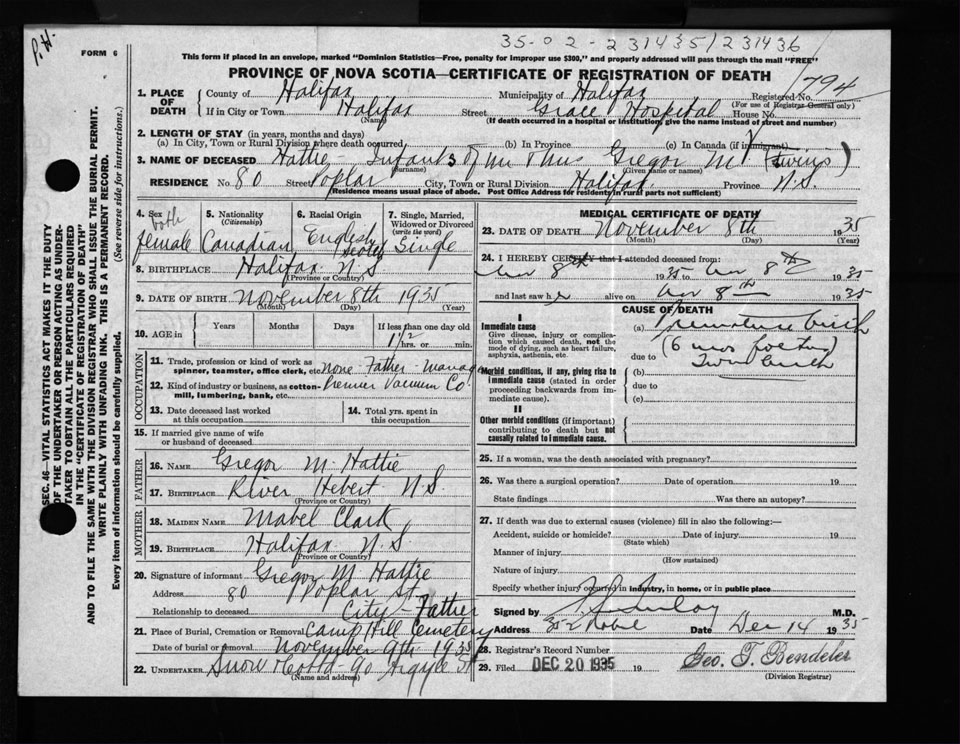 P.H.
35-02-231435/231436
FORM 6
This form if placed in an envelope, marked "Dominion Statistics—Free, penalty for improper use $300," and properly addressed will pass through the mail "FREE"
PROVINCE OF NOVA SCOTIA—CERTIFICATE OF REGISTRATION OF DEATH
794
1. PLACE OF DEATH
County of Halifax Municipality of Halifax Registered No.
(For use of Registrar General only)
If in City or Town Halifax Street Grace Hospital House No.
(Name) (If death occurred in a hospital or institution, give the name instead of street and number)
2. LENGTH OF STAY (in years, months and days)
(a) In City, Town or Rural Division where death occurred (b) In Province (c) In Canada (if immigrant)
3. NAME OF DECEASED Hattie - Infants of Mr & Mrs Gregor M. (Twins)
(Surname) (Given name or names)
RESIDENCE No. 80 Street Poplar City, Town or Rural Division Halifax Province N.S.
(Residence means usual place of abode. Post Office Address for residents in rural parts not sufficient)
4. Sex both female
5. Nationality (Citizenship) Canadian
6. Racial Origin English Scotch
7. Single, Married, Widowed or Divorced (write the word) Single
8. BIRTHPLACE Halifax N.S
(Province or Country)
9. DATE OF BIRTH November 8th 1935
(Month) (Day) (Year)
10. AGE in Years Months Days If less than one day old
1 1/2 hrs. or min.
OCCUPATION
11. Trade, profession or kind of work as spinner, teamster, office clerk, etc. none Father - Manager
12. Kind of industry or business, as cotton-mill, lumbering, bank, etc. Premier Vacuum Co.
13. Date deceased last worked at this occupation
14. Total yrs. spent in this occupation
15. If married give name of wife or husband of deceased
FATHER
16. NAME Gregor M. Hattie
17. BIRTHPLACE River Hebert N.S.
(Province or Country)
MOTHER
18. MAIDEN NAME Mabel Clark
19. BIRTHPLACE Halifax N.S.
(Province or Country)
20. Signature of informant Gregor M Hattie
Address 80 Poplar St.
City - Father
Relationship to deceased
21. Place of Burial, Cremation or Removal Camp Hill Cemetery
Date of burial or removal November 9th 1935
22. UNDERTAKER Snow & Co Ltd - 90 Argyle St
(Name and address)
MEDICAL CERTIFICATE OF DEATH
23. DATE OF DEATH November 8th 1935
(Month) (Day) (Year)
24. I HEREBY CERTIFY that I attended deceased from:
Nov 8th 1935 to Nov 8th 1935
and last saw her alive on Nov 8th 1935
CAUSE OF DEATH
I
Immediate cause
Give disease, injury or complication which caused death, not the mode of dying, such as heart failure, asphyxia, asthenia, etc.
(a) Premature birth
(6 mos foetus)
due to Twin birth
Morbid conditions, if any, giving rise to immediate cause (stated in order proceeding backwards from immediate cause).
(b)
due to
(c)
II
Other morbid conditions (if important) contributing to death but not causally related to immediate cause.
25. If a woman, was the death associated with pregnancy?
26. Was there a surgical operation? Date of operation 19
State findings Was there an autopsy?
27. If death was due to external causes (violence) fill in also the following:—
Accident, suicide or homicide? Date of injury 19
(State which)
Manner of injury
(How sustained)
Nature of injury
Specify whether injury occurred in industry, in home, or in public place
Signed by M.D.
Address 352 Robie Date Dec 14 1935
28. Registrar's Record Number
29. Filed DEC 20 1935 19 Geo. T. Bendeler
(Division Registrar)
SEC. 46—VITAL STATISTICS ACT MAKES IT THE DUTY
OF THE UNDERTAKER OR PERSON ACTING AS UNDER-
TAKER TO OBTAIN ALL THE PARTICULARS REQUIRED
IN THE "CERTIFICATE OF REGISTRATION OF DEATH"
AND TO FILE THE SAME WITH THE DIVISION REGISTRAR WHO SHALL ISSUE THE BURIAL PERMIT.
WRITE PLAINLY WITH UNFADING INK. THIS IS A PERMANENT RECORD.
Every item of information should be carefully supplied. (See reverse side for instructions.)